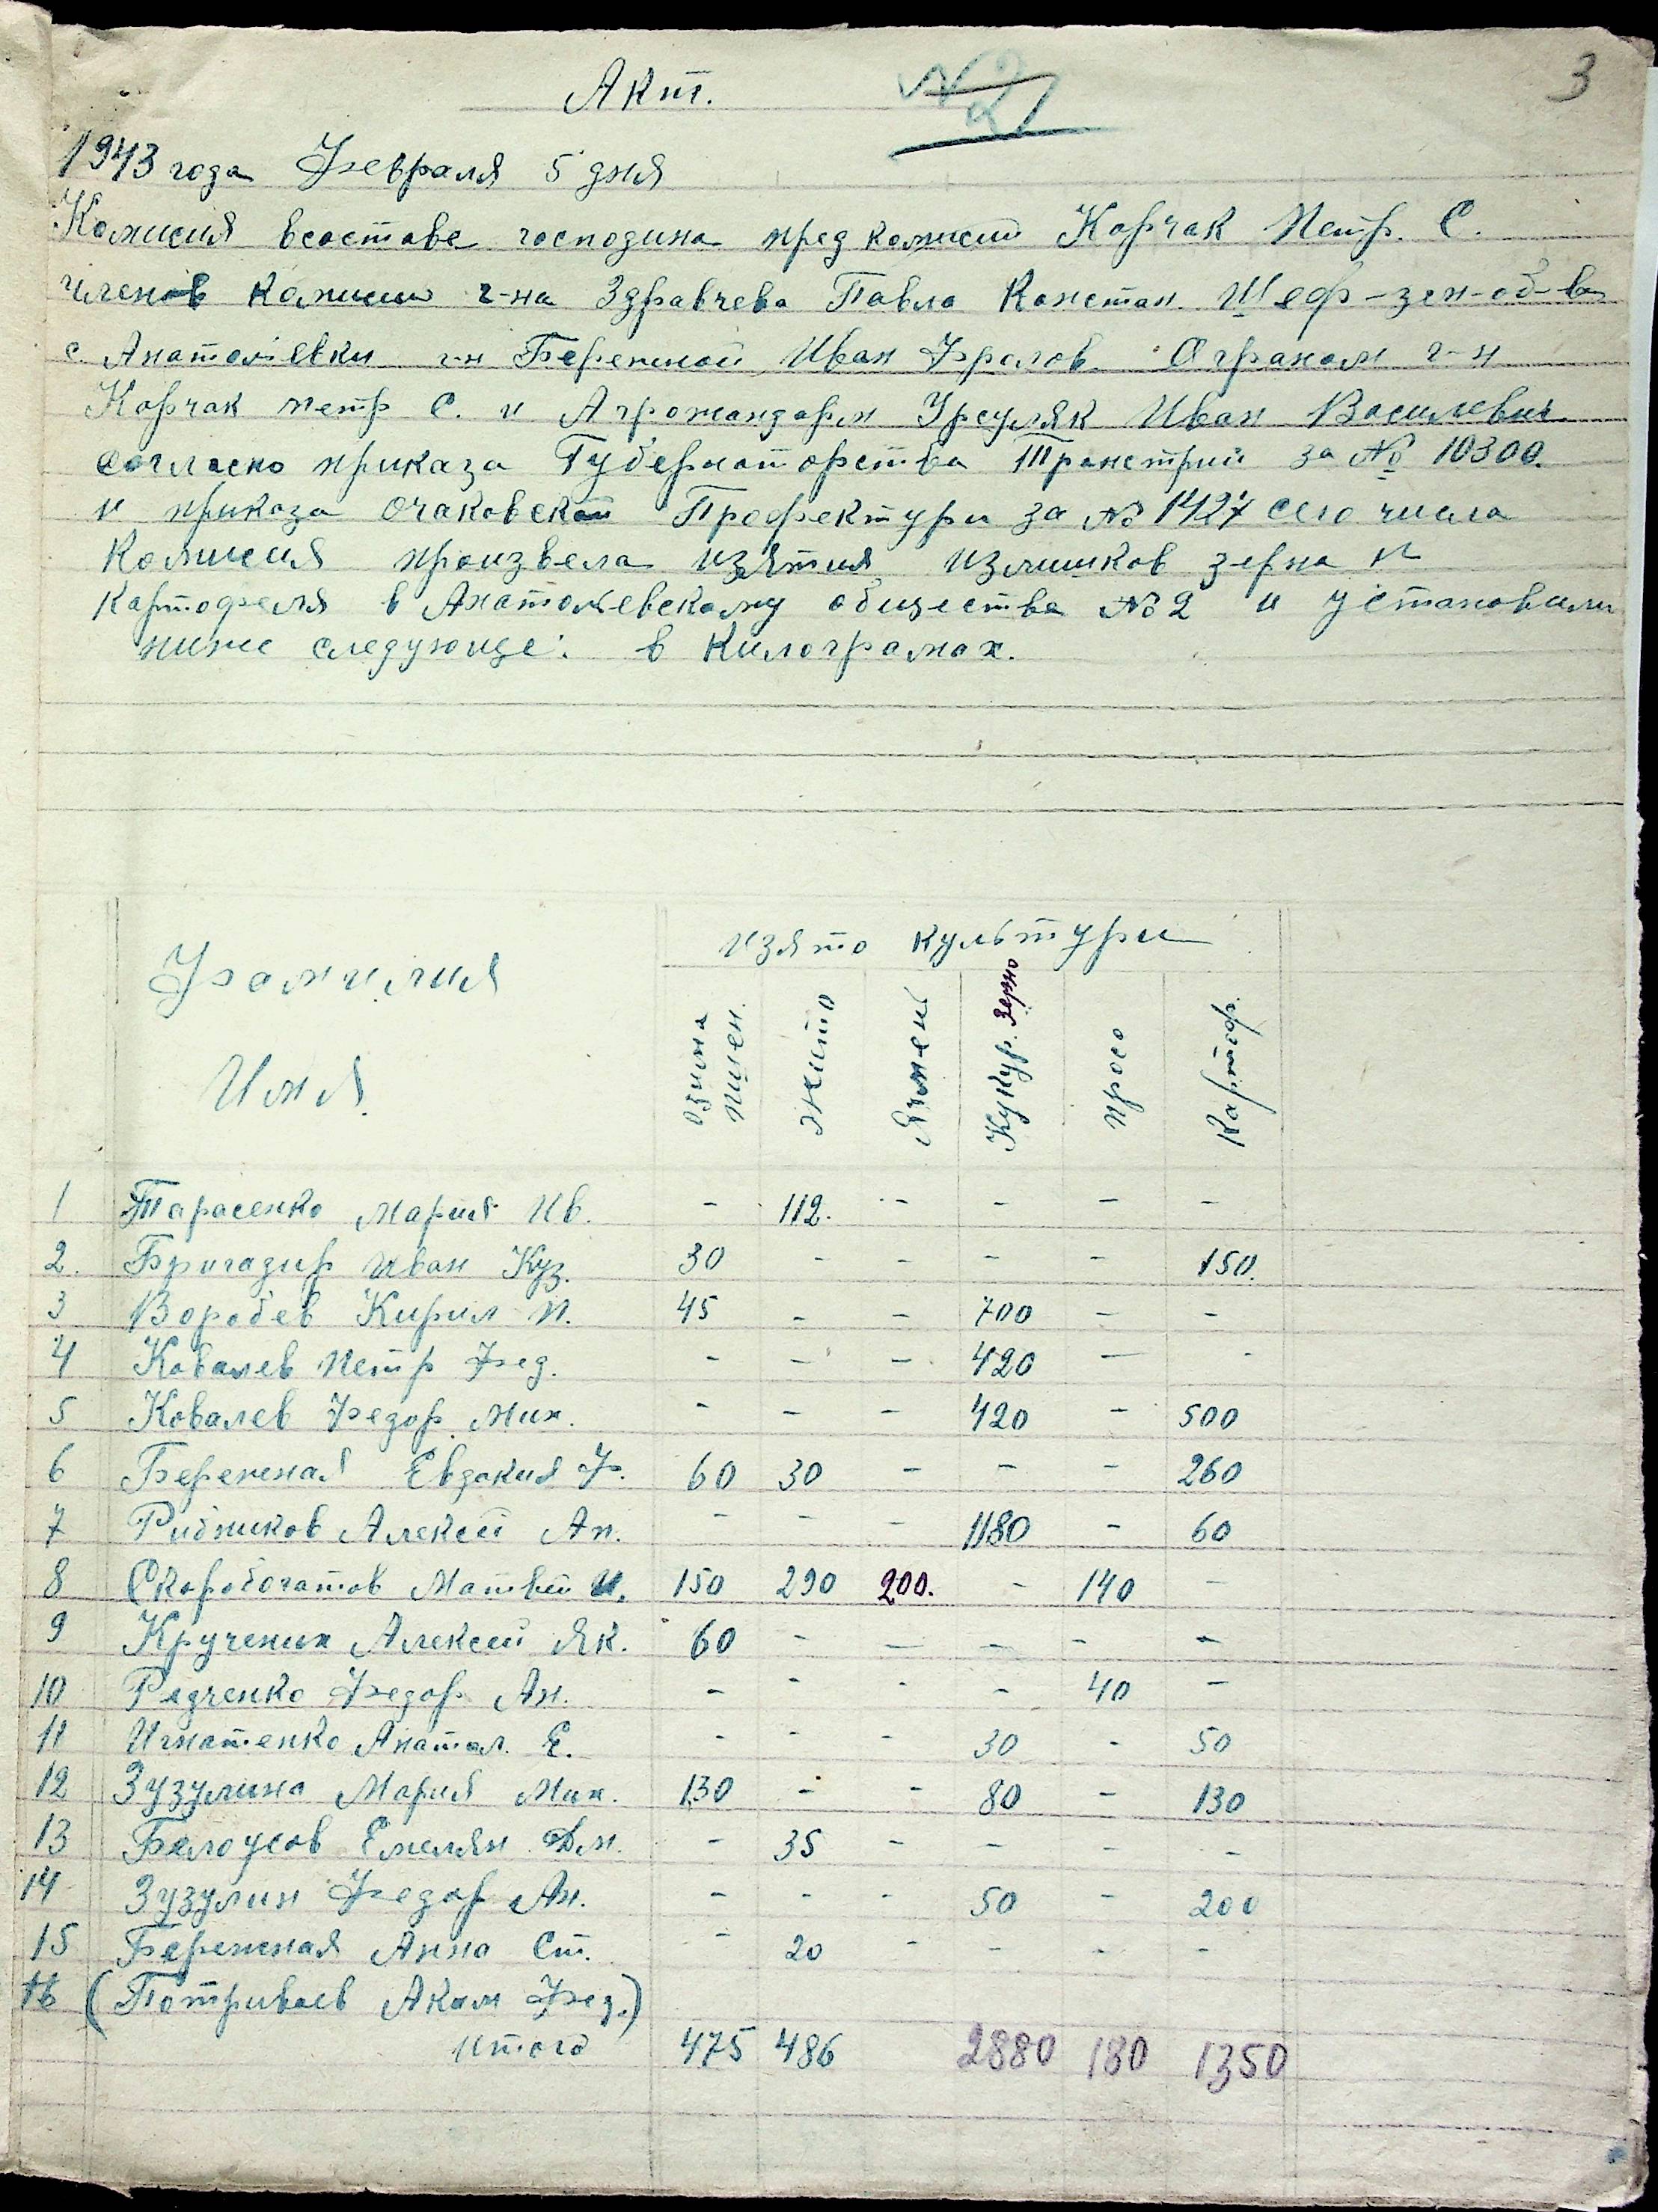 3
Акт.
№ 21
1943 года Февраля 5 дня
Комисия всоставе господина пред комисии Корчак Петр. С.
членов комисии г-на Здравчева Павла Констан. Шеф-зем-об-ва
с. Анатолиевки г-н Бережной Иван Фролов. Аграном г-н
Корчак петр С. и Агрожандарм Урсуляк Иван Василевич
согласно приказа Губернаторства Транстрии за № 10300.
и приказа очаковской Профектури за № 1427 сего числа
комисия произвела изятия излишков зерна и
картофеля в Анатольевскому общества № 2 и установили
ниже следующе: в килограмах.
Фамилия Имя. изято культури
Озима пшен. жито Ячмень Кукур. Зерно просо Картоф.
1 Тарасенко Мария Ив. - 112. - - - -
2. Бригадир Иван Куз. 30 - - - - 150.
3 Воробев Кирил П. 45 - - 700 - -
4 Ковалев Петр Фед. - - - 420 - -
5 Ковалев Федор Мих. - - - 420 - 500
6 Бережная Евдокия Ф. 60 30 - - - 260
7 Рибников Алексей Ан. - - - 1180 - 60
8 Скоробогатов Матвей И. 150 290 200. - 140 -
9 Крученик Алексей Як. 60 - - - - -
10 Редченко Федор Ан. - - - - 40 -
11 Игнатенко Анатол. Е. - - - 30 - 50
12 Зузулина Мария Мих. 130 - - 80 - 130
13 Белоусов Емелян Дм. - 35 - - - -
14 Зузулин Федор Ан. - - - 50 - 200
15 Бережная Анна Ст. - 20 - - - -
16 (Потриваев Аким Фед.)
итого 475 486 2880 180 1350